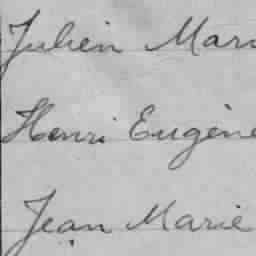 Julien Mari
Henri Eugène
Jean Marie